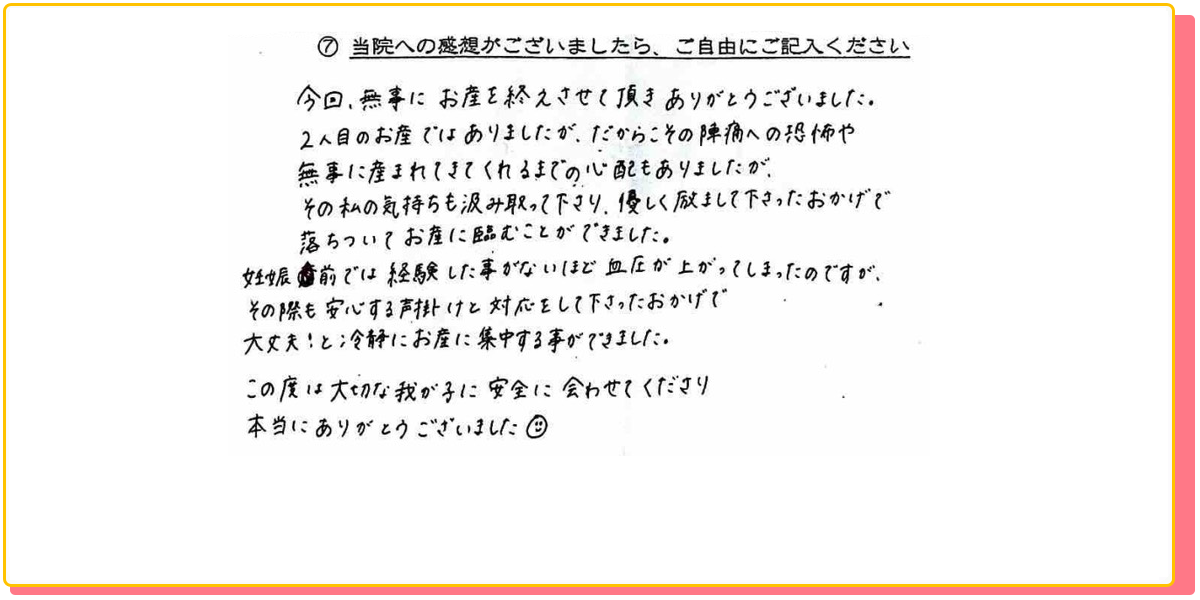 ⑦ 当院への感想がございましたら、ご自由にご記入ください
今回、無事に お産を終えさせて頂き ありがとうございました。
2人目のお産ではありましたが、だからこその陣痛への恐怖や
無事に産まれてきてくれるまでの心配もありましたが、
その私の気持ちも汲み取って下さり、優しく励まして下さったおかげで
落ちついてお産に臨むことができました。
妊娠前では経験した事がないほど血圧が上がってしまったのですが、
その際も安心する声掛けと対応をして下さったおかげで
大丈夫!と冷静にお産に集中する事ができました。
この度は大切な我が子に安全に会わせてくださり
本当にありがとうございました☺